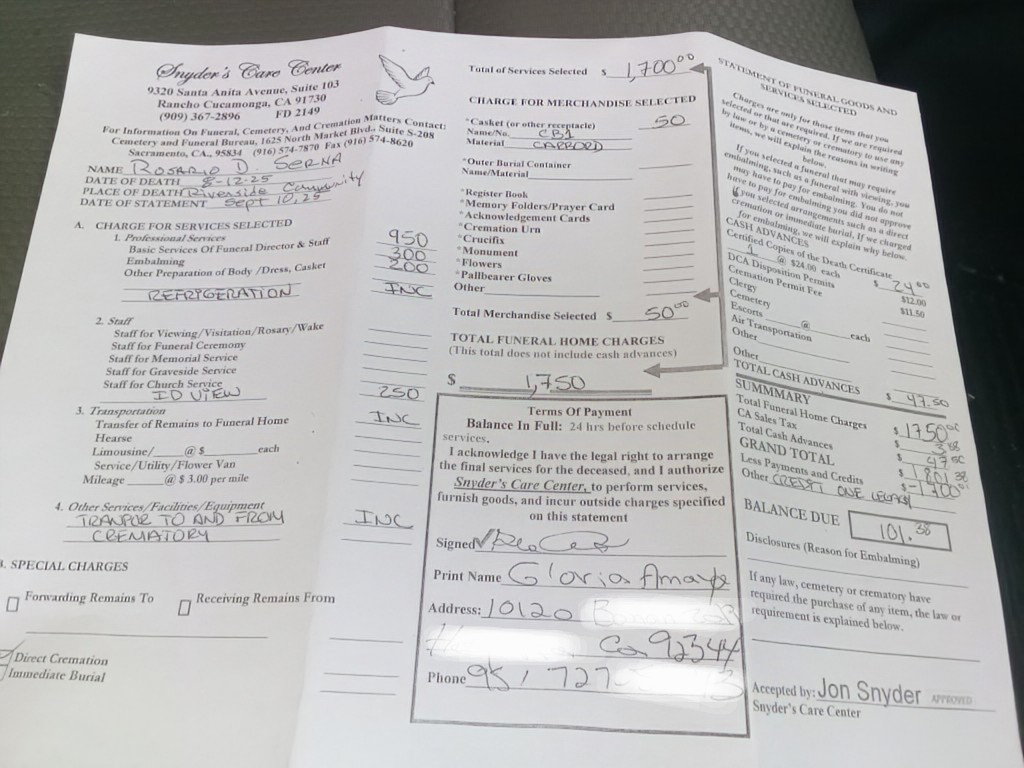 Snyder's Care Center
9320 Santa Anita Avenue, Suite 103
Rancho Cucamonga, CA 91730
(909) 367-2896 FD 2149
For Information On Funeral, Cemetery, And Cremation Matters Contact:
Cemetery and Funeral Bureau, 1625 North Market Blvd., Suite S-208
Sacramento, CA., 95834 (916) 574-7870 Fax (916) 574-8620
NAME ROSARIO D SERNA
DATE OF DEATH 8-12-25
PLACE OF DEATH Riverside Community
DATE OF STATEMENT Sept 10, 25
A. CHARGE FOR SERVICES SELECTED
1. Professional Services
Basic Services Of Funeral Director & Staff 950
Embalming 300
Other Preparation of Body /Dress, Casket 200
REFRIGERATION INC
2. Staff
Staff for Viewing/Visitation/Rosary/Wake
Staff for Funeral Ceremony
Staff for Memorial Service
Staff for Graveside Service
Staff for Church Service
ID VIEW 250
3. Transportation
Transfer of Remains to Funeral Home INC
Hearse
Limousine/ @ $ each
Service/Utility/Flower Van
Mileage @ $ 3.00 per mile
4. Other Services/Facilities/Equipment
TRANPOR TO AND FROM INC
CREMATORY
. SPECIAL CHARGES
Forwarding Remains To Receiving Remains From
Direct Cremation
Immediate Burial
Total of Services Selected $ 1,700 00
CHARGE FOR MERCHANDISE SELECTED
*Casket (or other receptacle) 50
Name/No. CB1
Material CARBORD
*Outer Burial Container
Name/Material
*Register Book
*Memory Folders/Prayer Card
*Acknowledgement Cards
*Cremation Urn
*Crucifix
*Monument
*Flowers
*Pallbearer Gloves
Other
Total Merchandise Selected $ 50 00
TOTAL FUNERAL HOME CHARGES
(This total does not include cash advances)
$ 1,750
Terms Of Payment
Balance In Full: 24 hrs before schedule
services.
I acknowledge I have the legal right to arrange
the final services for the deceased, and I authorize
Snyder's Care Center, to perform services,
furnish goods, and incur outside charges specified
on this statement
Signed
Print Name Gloria Amaya
Address: 10120
Ca 92344
Phone 951 727
STATEMENT OF FUNERAL GOODS AND
SERVICES SELECTED
Charges are only for those items that you
selected or that are required. If we are required
by law or by a cemetery or crematory to use any
items, we will explain the reasons in writing
below.
If you selected a funeral that may require
embalming, such as a funeral with viewing, you
may have to pay for embalming. You do not
have to pay for embalming you did not approve
if you selected arrangements such as a direct
cremation or immediate burial. If we charged
for embalming, we will explain why below.
CASH ADVANCES
Certified Copies of the Death Certificate
1 @ $24.00 each $ 24 00
DCA Disposition Permits $12.00
Cremation Permit Fee $11.50
Clergy
Cemetery
Escorts @ each
Air Transportation
Other
Other
TOTAL CASH ADVANCES $ 47.50
SUMMMARY
Total Funeral Home Charges $ 1750 00
CA Sales Tax $ 3 88
Total Cash Advances $ 47 50
GRAND TOTAL $ 1801 38
Less Payments and Credits $ -1700 00
Other CREDIT ONE LEGACY
BALANCE DUE 101.38
Disclosures (Reason for Embalming)
If any law, cemetery or crematory have
required the purchase of any item, the law or
requirement is explained below.
Accepted by: Jon Snyder APPROVED
Snyder's Care Center